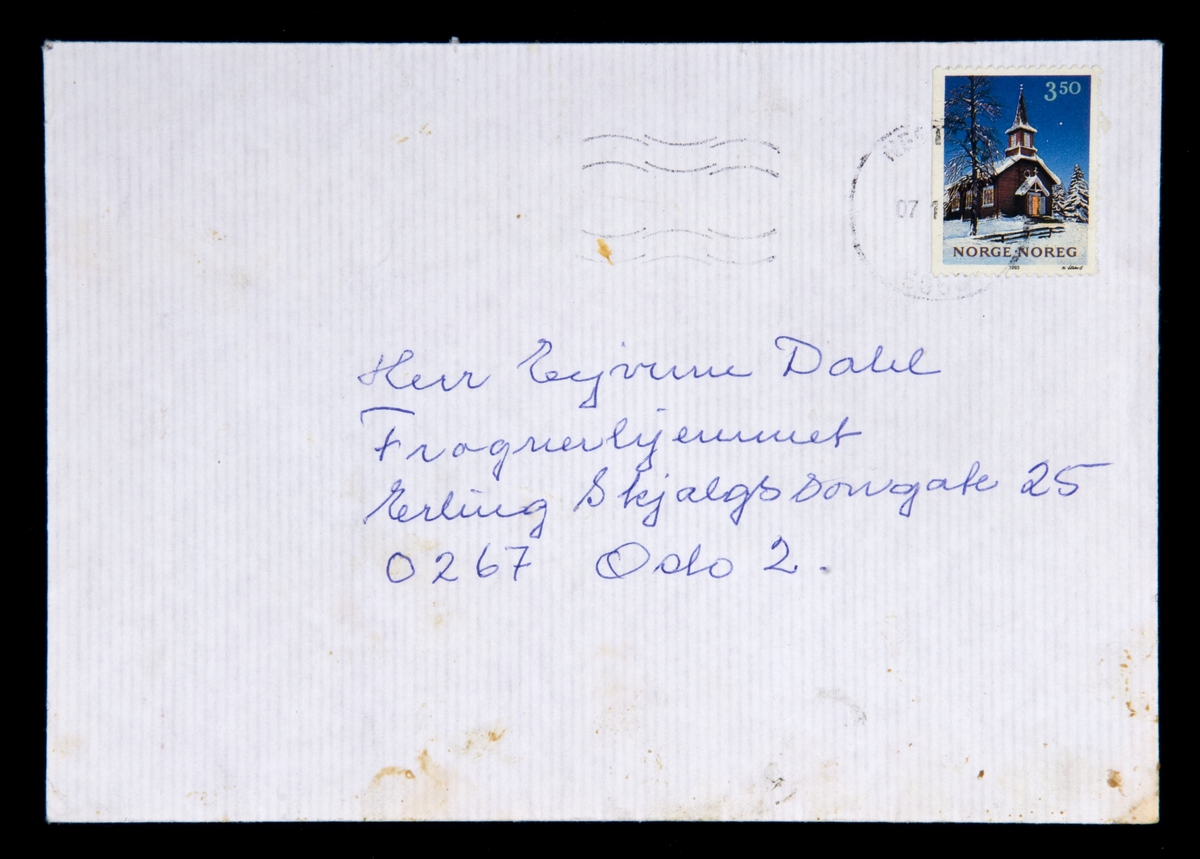 3 50
07 1
NORGE·NOREG
Herr Dahl
Frognerhjemmet
Erling Skjalgssonsgate 25
0267 Oslo 2.